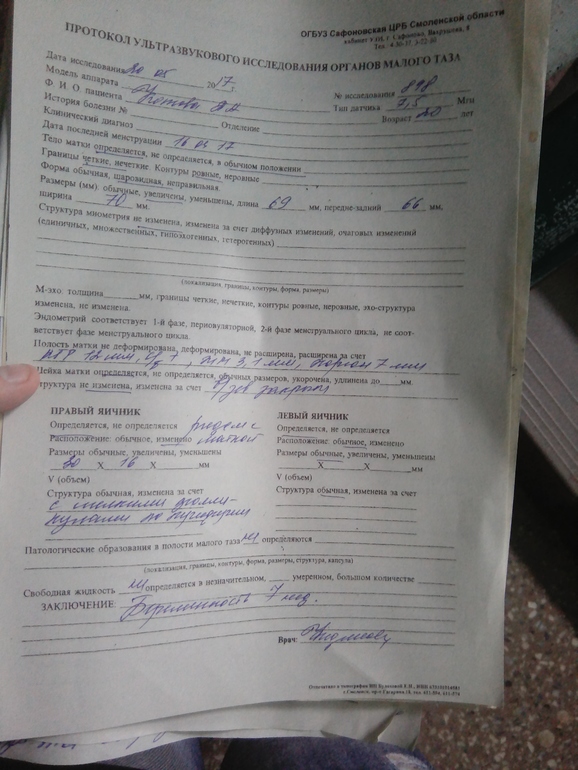 ОГБУЗ Сафоновская ЦРБ Смоленской области
кабинет УЗИ, г. Сафоново, Вахрушева, 8
Тел. 4-30-37, 3-22-03
ПРОТОКОЛ УЛЬТРАЗВУКОВОГО ИССЛЕДОВАНИЯ ОРГАНОВ МАЛОГО ТАЗА
Дата исследования 30 05 2017 г. № исследования 898
Модель аппарата Тип датчика 3,5 Мгц
Ф. И. О. пациента Возраст 20 лет
История болезни № Отделение
Клинический диагноз
Дата последней менструации 16 03 17
Тело матки определяется, не определяется, в обычном положении
Границы четкие, нечеткие. Контуры ровные, неровные
Форма обычная, шаровидная, неправильная.
Размеры (мм) обычные, увеличены, уменьшены, длина 69 мм, передне-задний 66 мм,
ширина 70 мм.
Структура миометрия не изменена, изменена за счет диффузных изменений, очаговых изменений
(единичных, множественных, гипоэхогенных, гетерогенных)
(локализация, границы, контуры, форма, размеры)
М-эхо. толщина мм, границы четкие, нечеткие, контуры ровные, неровные, эхо-структура
изменена, не изменена.
Эндометрий соответствует 1-й фазе, периовуляторной, 2-й фазе менструального цикла, не соот-
ветствует фазе менструального цикла.
Полость матки не деформирована, деформирована, не расширена, расширена за счет
КТР 12 мм, 3,1 мм, хорион 7 мм
Шейка матки определяется, не определяется, обычных размеров, укорочена, удлинена до мм.
структура не изменена, изменена за счет зев закрыт
ПРАВЫЙ ЯИЧНИК ЛЕВЫЙ ЯИЧНИК
Определяется, не определяется рядом с Определяется, не определяется
Расположение: обычное, изменено маткой Расположение: обычное, изменено
Размеры обычные, увеличены, уменьшены Размеры обычные, увеличены, уменьшены
30 Х 16 Х мм Х Х мм
V (объем) V (объем)
Структура обычная, изменена за счет Структура обычная, изменена за счет
с мелкими фолли-
кулами по периферии
Патологические образования в полости малого таза не определяются
(локализация, границы, контуры, форма, размеры, структура, капсула)
Свободная жидкость не определяется в незначительном, умеренном, большом количестве
ЗАКЛЮЧЕНИЕ Беременность 7 нед.
Врач: